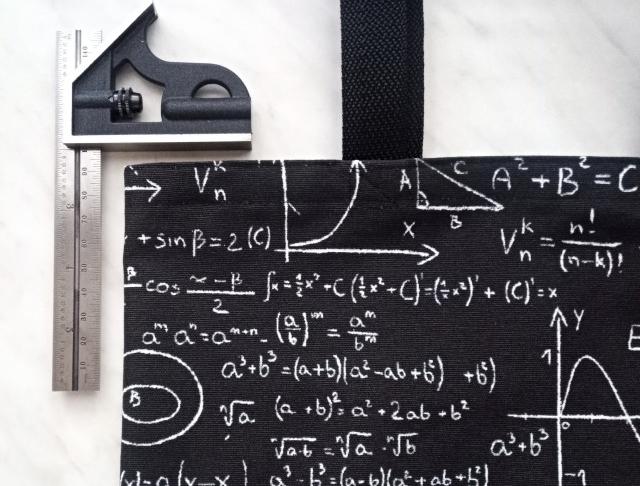 V_n^k
A C B
A² + B² = C
X
+ sin β = 2 (C)
V_n^k = n!/(n-k)!
β cos (x - β)/2
∫x = ½x² + C (½x² + C)' = (½x²)' + (C)' = x
Y
a^m a^n = a^{m+n} - (a/b)^m = a^m/b^m
1
a³ + b³ = (a+b)(a² - ab + b²) + b²)
B
ⁿ√a (a + b)² = a² + 2ab + b²
0
ⁿ√a·b = ⁿ√a · ⁿ√b
a³ + b³
a³ - b³ = (a-b)(a² + ab + b²)
-1